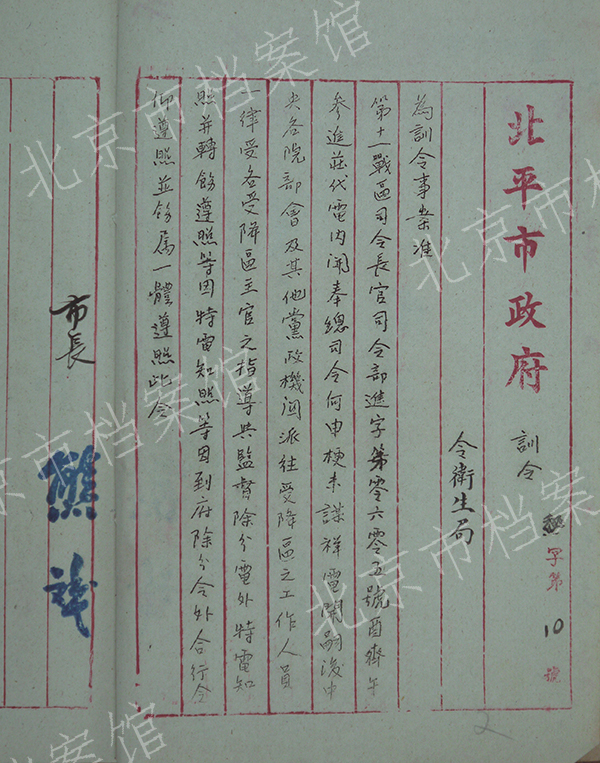 北平市政府
訓令
字第10號
令衛生局
為訓令事案准
第十一戰區司令長官司令部進字第零六零五號酉齊午
參進莊代電內開奉總司令何申梗未謀祥電開嗣後中
央各院部會及其他黨政機関派往受降區之工作人員
一律受各受降區主官之指導與監督除分電外特電知
照並轉飭遵照等因特電知照等因到府除分令外合行令
仰遵照並飭屬一體遵照此令
市長
熊斌
2
北京市档案馆
北京市档案馆
北京市档案馆
北京市档案馆
北京市档案馆